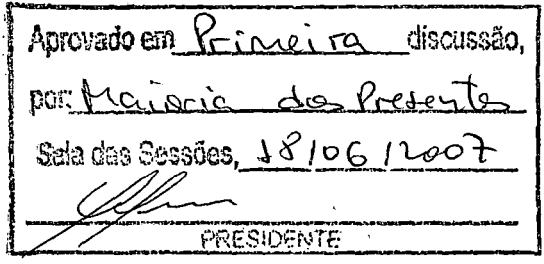 Aprovado em Primeira discussão,
por: Maioria dos Presentes
Sala das Sessões, 18/06/2007
PRESIDENTE